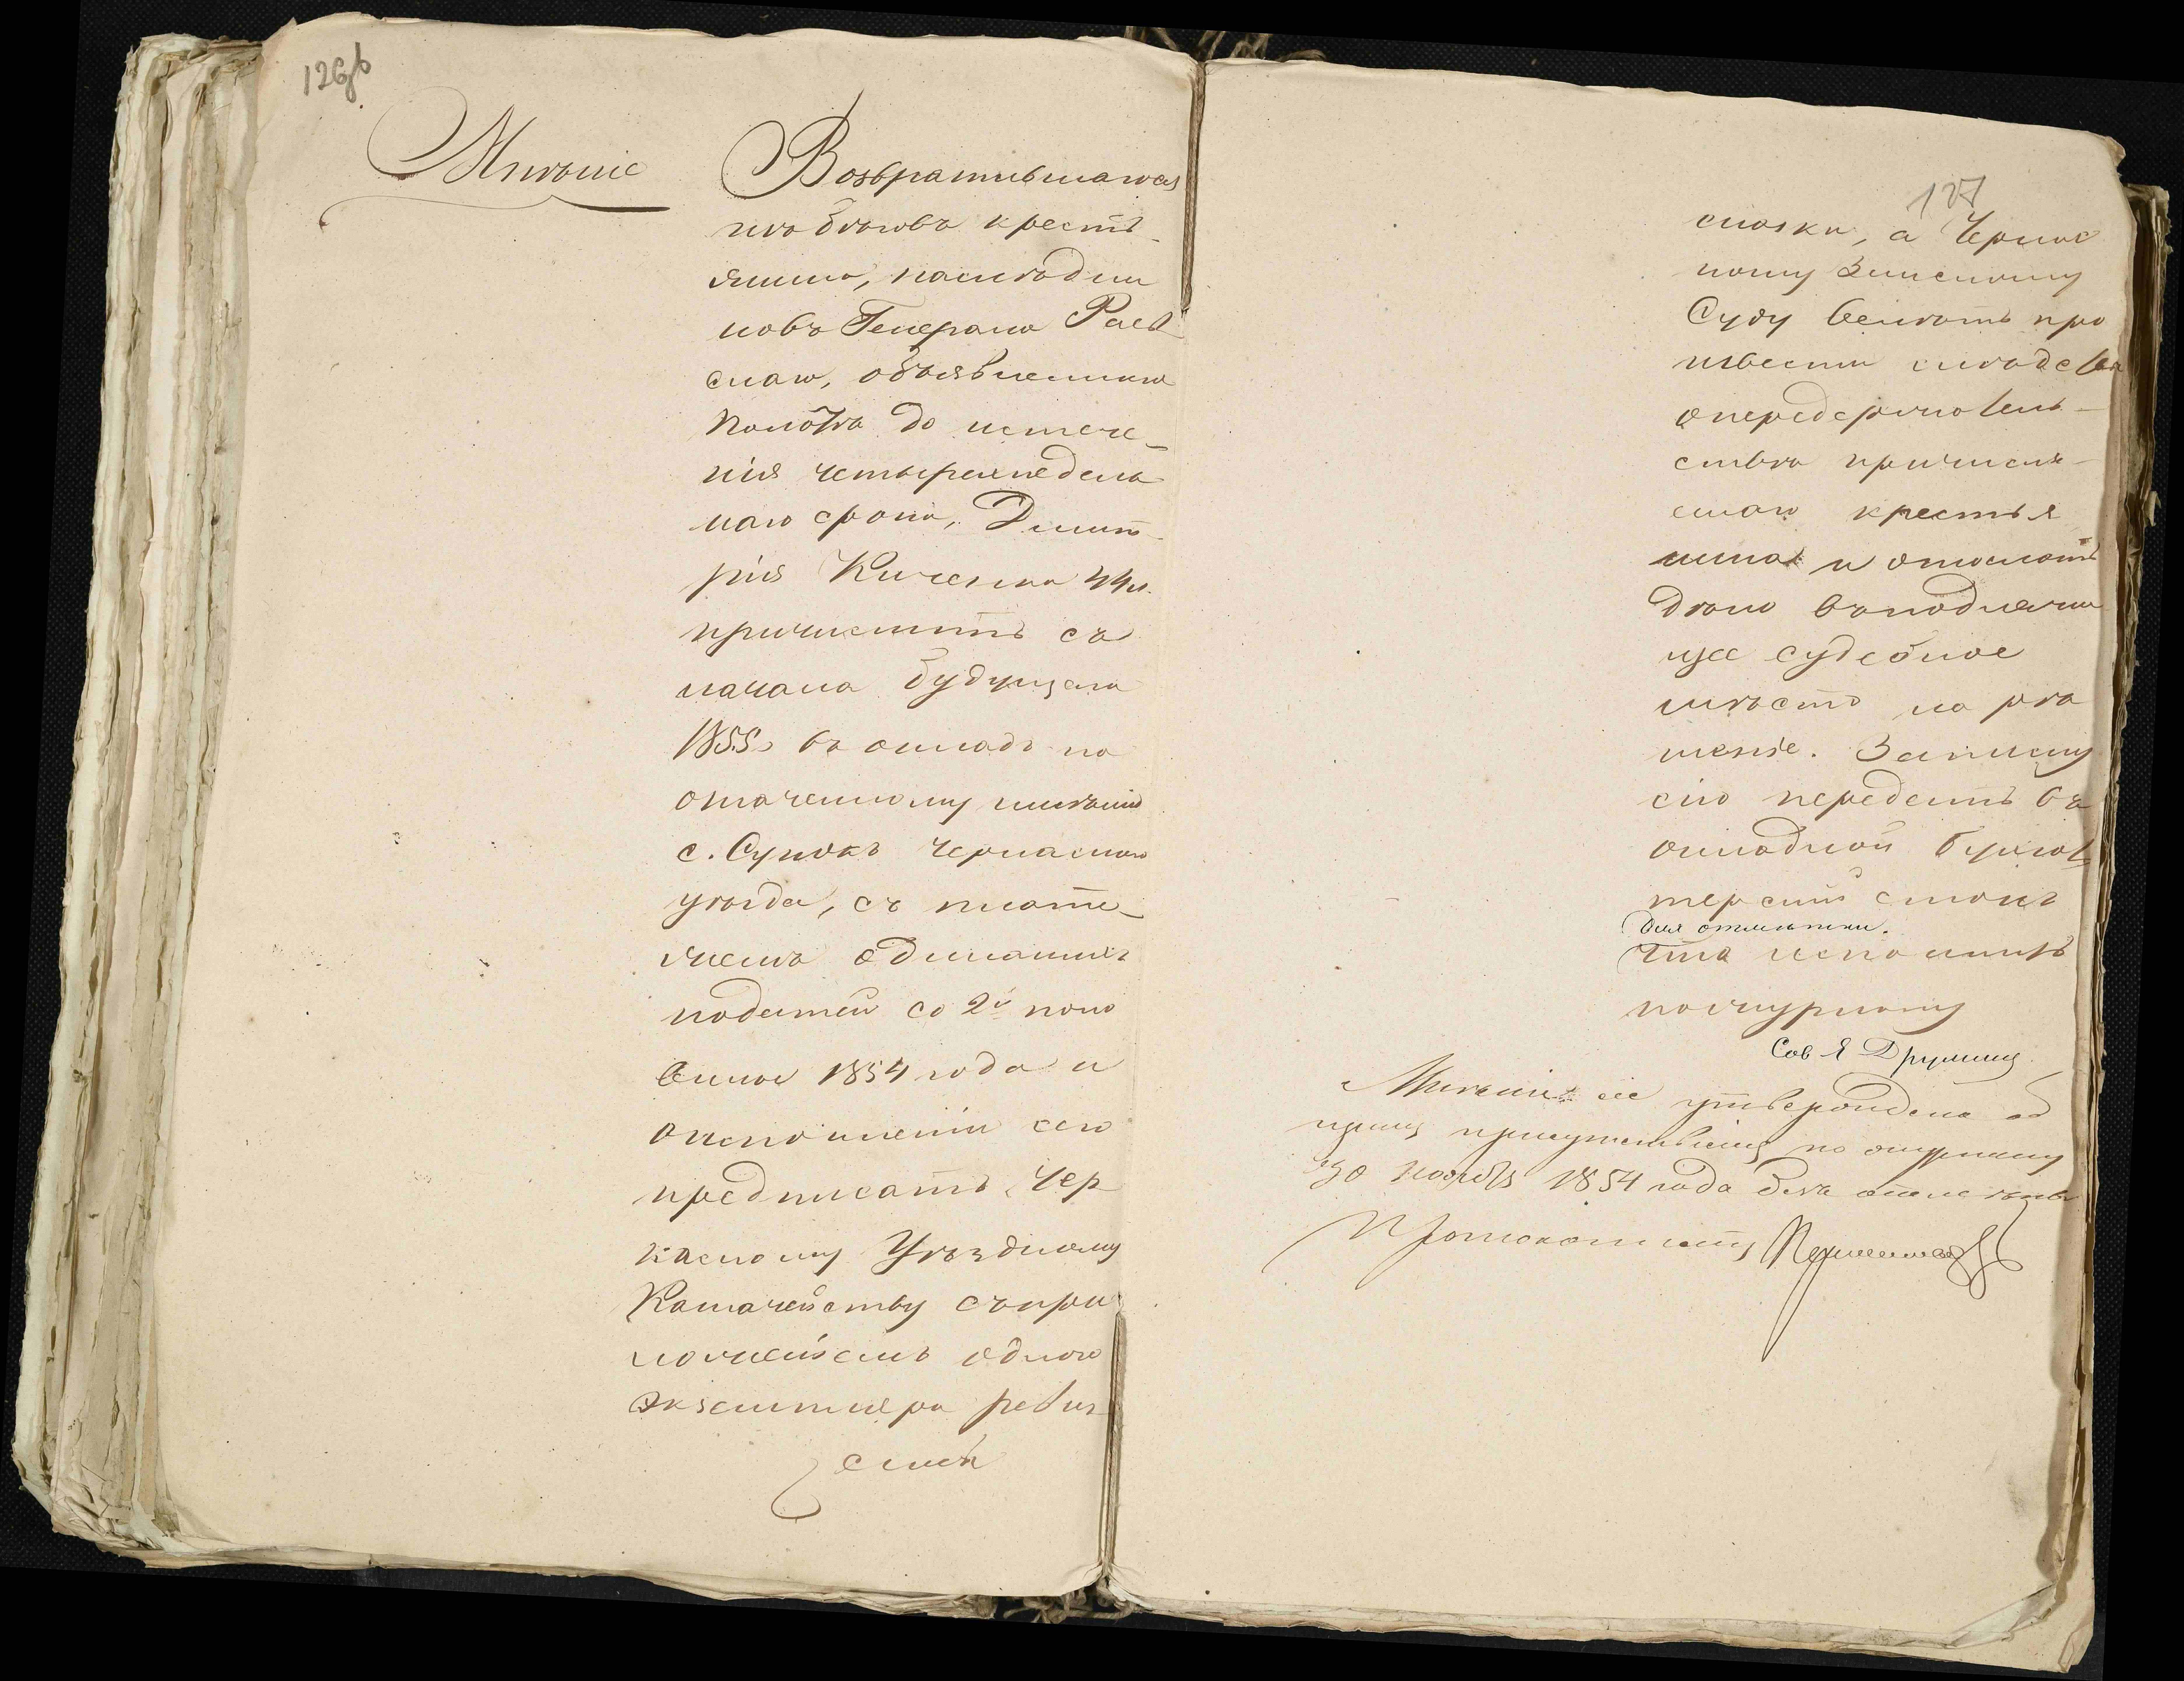 126об
Мнѣніе
Возвратившагося
изъ бѣговъ кресть-
янина, наслѣдни
ковъ Генерала Раев
скаго, объявленнаго
Палатѣ до истече-
нія четырехнедѣль
наго срока, Дмит-
рія Киченка 44 л.
причислить съ
начала будущаго
1855 г. въ окладъ по
означенному имѣнію
с. Сунокъ Черкаскаго
уѣзда, съ плате-
жемъ одинакихъ
податей со 2й поло
вины 1854 года и
о исполненіи сего
предписать Чер
каскому Уѣздному
Казначейству съ при
ложеніемъ одного
экземпляра ревиз-
скои
127
сказки, а Черкас
кому Земскому
Суду велѣть про
извести слѣдствіе
о передержатель-
ствѣ причисля-
емаго крестья
нина и отослать
дѣло въ подлежа
щее судебное
мѣсто на рѣ
шеніе. Записку
сію передать въ
окладной бухгал
терскій столъ
для отмѣтки.
что исполнить
по журналу
Сов. Я
Мнѣніе сіе утверждено об
щимъ присутствіемъ по журналу
30 Ноября 1854 года безъ отмѣны
Протоколистъ